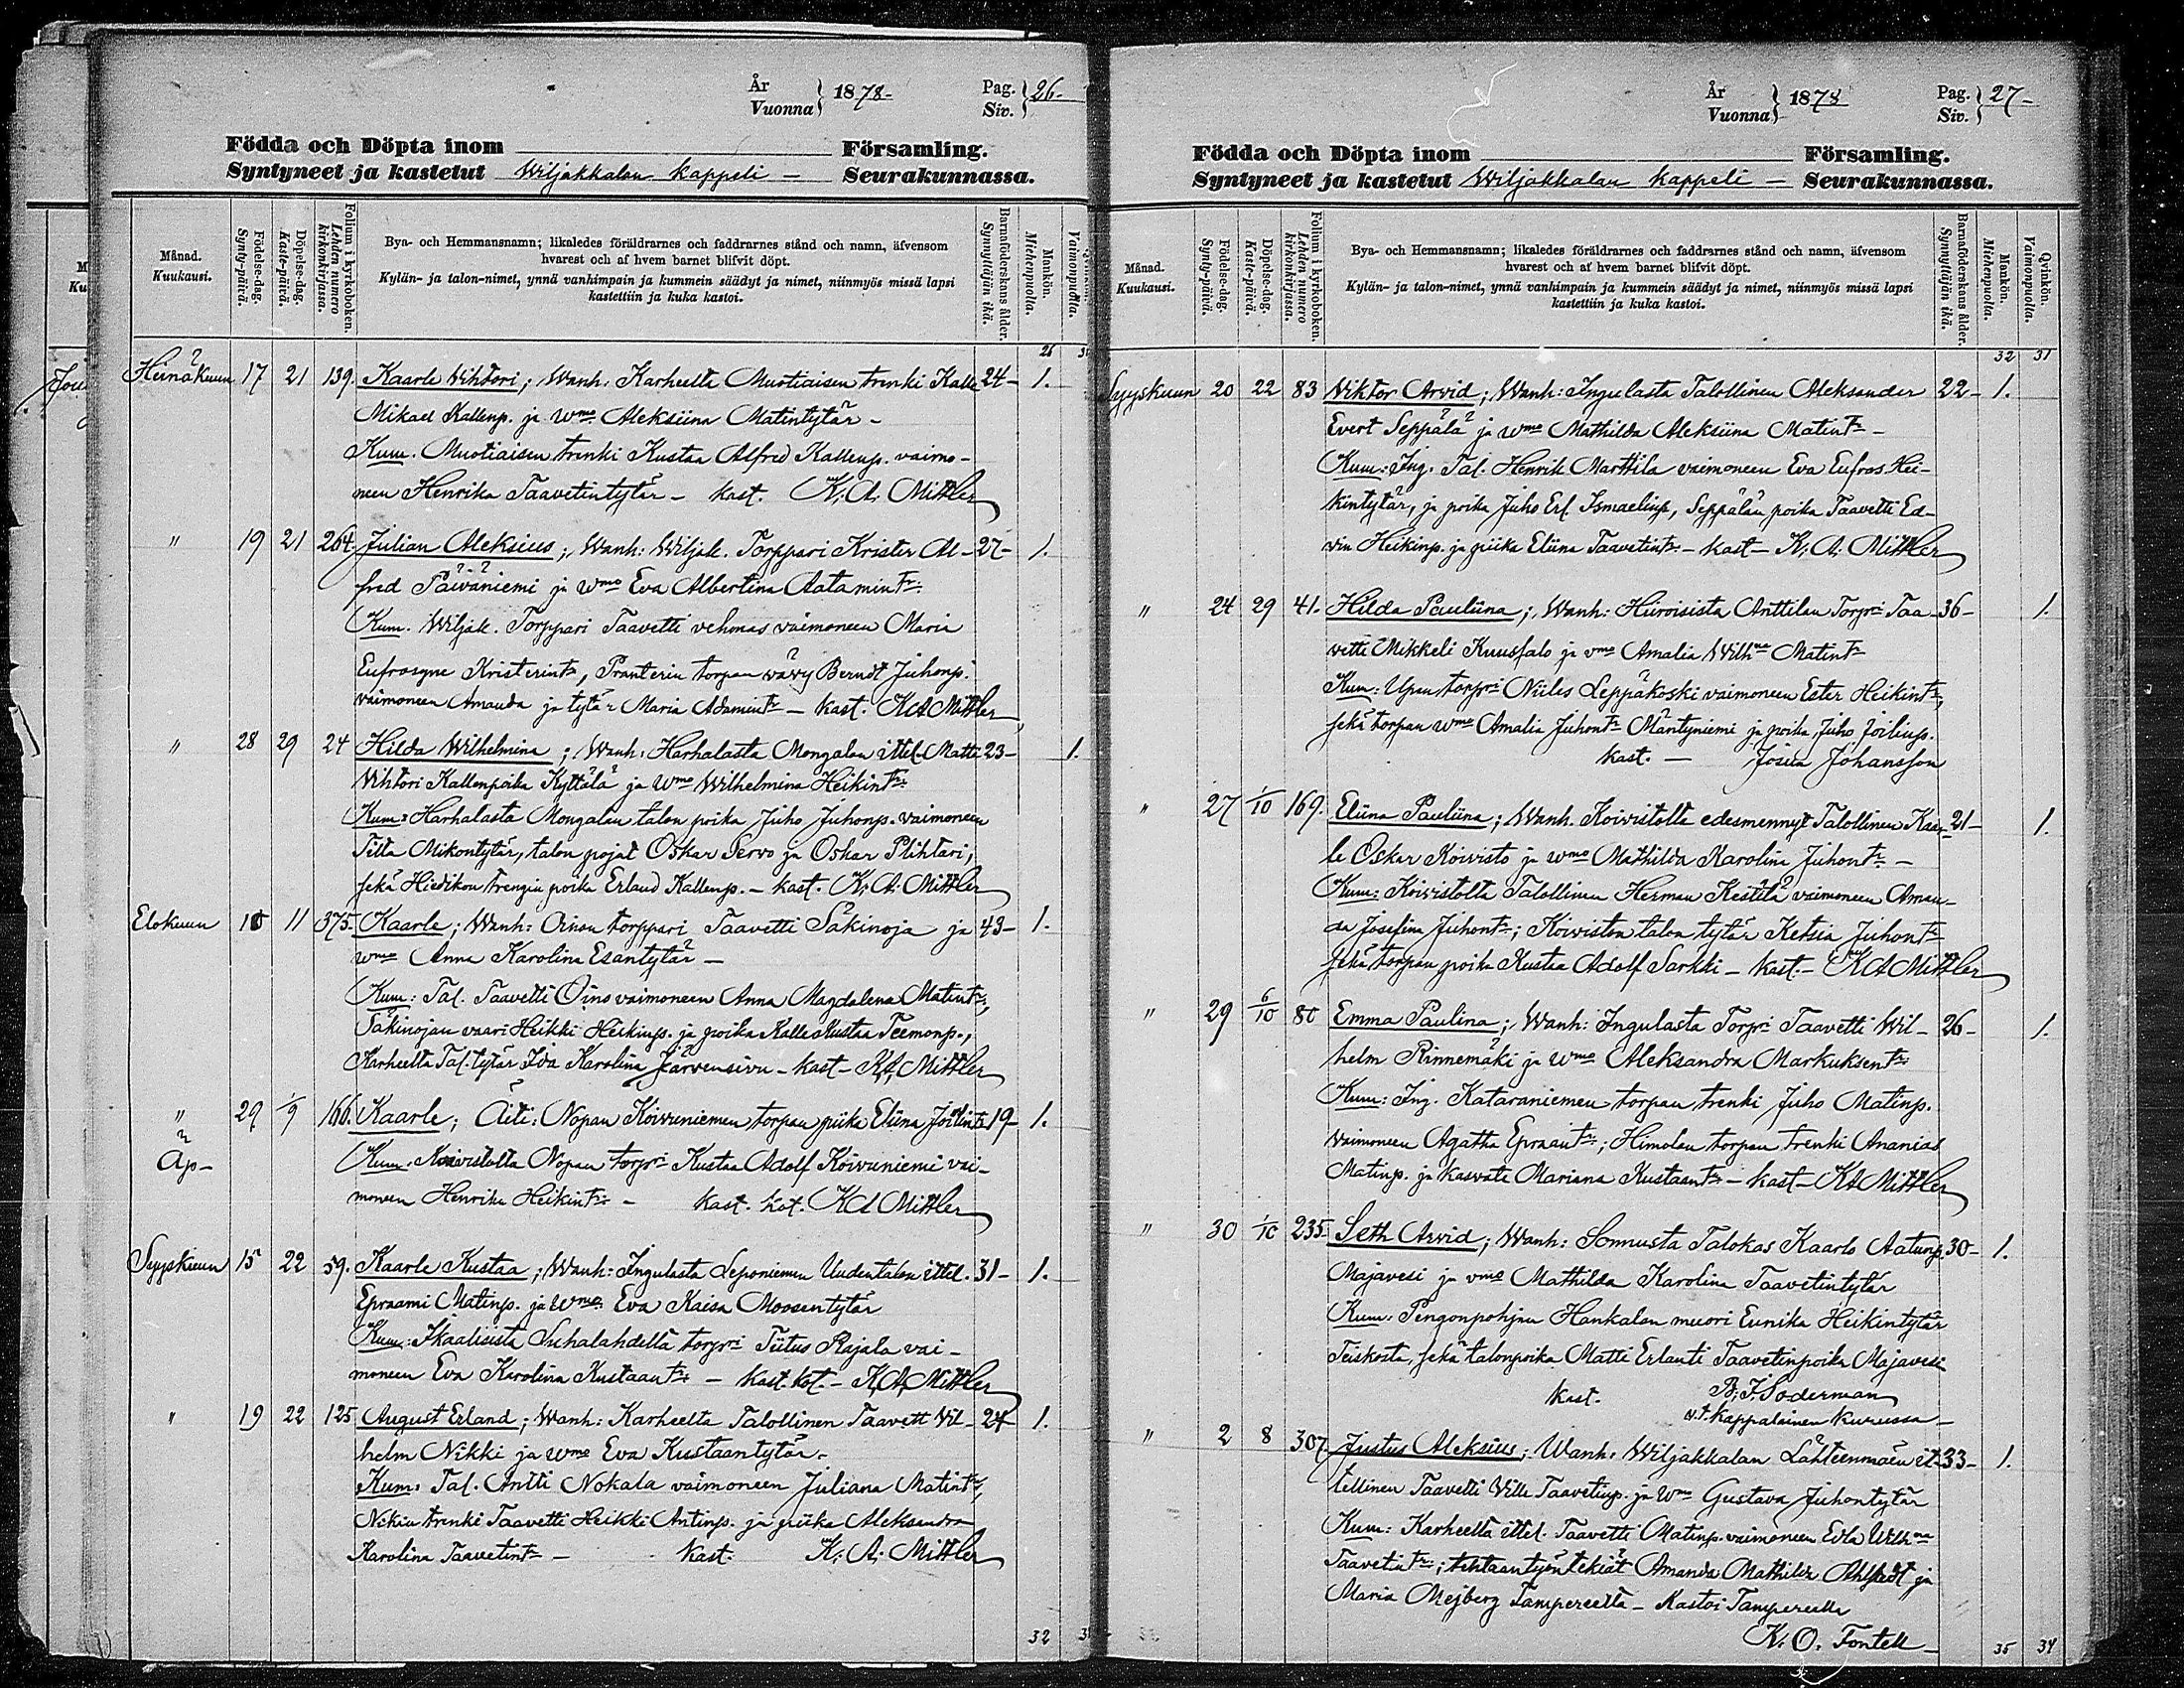 År
Vuonna } 1878- Pag.
Siv. } 26-
Födda och Döpta inom Församling.
Syntyneet ja kastetut Wiljakkalan kappeli - Seurakunnassa.
Månad.
Kuukausi.
Födelse-dag.
Synty-päivä.
Döpelse-dag.
Kaste-päivä.
Folium i kyrkoboken.
Lehden numero
kirkonkirjassa.
Bya- och Hemmansnamn; likaledes föräldrarnes och faddrarnes stånd och namn, äfvensom
hvarest och af hvem barnet blifvit döpt.
Kylän- ja talon-nimet, ynnä vanhimpain ja kummein säädyt ja nimet, niinmyös missä lapsi
kastettiin ja kuka kastoi.
Barnaföderskans ålder.
Synnyttäjän ikä.
Mankön.
Miehenpuolia.
Vaimonpuolia.
Heinäkuun 17 21 139. Kaarle Vihtori; Wanh. Karheelta Muotiaisen trenki Kalle 24- 1.
Mikael Kallenp. ja Wmo Aleksiina Matintytär -
Kum. Muotiaisen trenki Kustaa Alfred Kallenp. vaimo-
neen Henrika Taavetintytär - kast. K. A. Mittler
" 19 21 264. Julian Aleksius; Wanh: Wiljak. Torppari Krister Al- 27- 1.
fred Päiväniemi ja Wmo Eva Albertina Aatamintr.
Kum. Wiljak. Torppari Taavetti vehmas vaimoneen Maria
Eufrosyne Kristerintr, Pranterin torpan vävy Berndt Juhonp.
vaimoneen Amanda ja tytär Maria Adamintr - kast. KA Mittler
" 28 29 24 Hilda Wilhelmina; Wanh: Harhalasta Mongalan ittel. Matti 23- 1.
Vihtori Kallenpoika Kyttälä ja Wmo Wilhelmina Heikintr.
Kum: Harhalasta Mongalan talon poika Juho Juhonp. vaimoneen
Tilta Mikontytär, talon pojat Oskar Servo ja Oskar Plihtari,
sekä Hiedikon trengin poika Erland Kallenp. - kast. K. A. Mittler
Elokuun 10 11 375. Kaarle; Wanh: Oinon torppari Taavetti Säkinoja ja 43- 1.
wmo Anna Karolina Esantytär -
Kum: Tal. Taavetti Oino vaimoneen Anna Magdalena Matintr,
Säkinojan vaari Heikki Heikinp. ja poika Kalle Kustaa Teemonp.,
Karheelta Tal. tytär Ida Karolina Järvensivu - kast - KA, Mittler
" 29 1/9 166. Kaarle; Äiti: Nopan Koivuniemen torpan piika Eliina Joilintr. 19- 1.
Äp- Kum. Koivistolta Nopan torpri Kustaa Adolf Koivuniemi vai-
moneen Henrika Heikintr. - kast. kot. KA Mittler
Syyskuun 15 22 59. Kaarle Kustaa; Wanh: Ingulasta Leponiemen Uudentalon ittel. 31- 1.
Epraami Matinp. ja Wmo Eva Kaisa Moosentytär
Kum: Ikaalisista Suhalahdella torpri Tiitus Rajala vai-
moneen Eva Karolina Kustaantr. - kast. kot. - KA, Mittler
" 19 22 125 August Erland; Wanh: Karheelta Talollinen Taavett Vil- 24 1.
helm Nikki ja wmo Eva Kustaantytär.
Kum. Tal. Antti Nokala vaimoneen Juliana Matintr,
Nikin trenki Taavetti Heikki Antinp. ja piika Aleksandra
Karolina Taavetintr - kast. K. A. Mittler
32
År
Vuonna } 1878 Pag.
Siv. } 27-
Födda och Döpta inom Församling.
Syntyneet ja kastetut Wiljakkalan kappeli - Seurakunnassa.
Månad.
Kuukausi.
Födelse-dag.
Synty-päivä.
Döpelse-dag.
Kaste-päivä.
Folium i kyrkoboken.
Lehden numero
kirkonkirjassa.
Bya- och Hemmansnamn; likaledes föräldrarnes och faddrarnes stånd och namn, äfvensom
hvarest och af hvem barnet blifvit döpt.
Kylän- ja talon-nimet, ynnä vanhimpain ja kummein säädyt ja nimet, niinmyös missä lapsi
kastettiin ja kuka kastoi.
Barnaföderskans ålder.
Synnyttäjän ikä.
Mankön.
Miehenpuolia.
Qvinkön.
Vaimonpuolia.
32 31
Syyskuun 20 22 83 Viktor Arvid; Wanh: Ingulasta Talollinen Aleksander 22- 1.
Evert Seppälä ja wmo Mathilda Aleksiina Matintr -
Kum: Ing. Tal. Henrik Marttila vaimoneen Eva Eufros. Hei-
kintytär, ja poika Juho Erl. Ismaelinp, Seppälän poika Taavetti Ed-
vin Heikinp. ja piika Eliina Taavetintr. - kast - K. A. Mittler
" 24 29 41. Hilda Pauliina; Wanh: Hiiroisista Anttilan Torpri Taa- 36- 1.
vetti Mikkeli Kuusfalo ja vmo Amalia Wilhna Matintr
Kum: Upan torpri Niiles Leppäkoski vaimoneen Ester Heikintr,
sekä torpan wmo Amalia Juhontr Mäntyniemi ja poika Juho Joilinp.
kast. - Josua Johansson
" 27 1/10 169. Eliina Pauliina; Wanh. Koivistolta edesmennyt Talollinen Kaar- 21- 1.
le Oskar Koivisto ja wmo Mathilda Karolina Juhontr -
Kum: Koivistolta Talollinen Herman Kestilä vaimoneen Aman-
da Josefina Juhontr; Koiviston talon tytär Ketsia Juhontr
sekä torpan poika Kustaa Adolf Sarkki - kast. - KA Mittler
" 29 6/10 80 Emma Paulina; Wanh: Ingulasta Torpri Taavetti Wil- 26- 1.
helm Rinnemäki ja wmo Aleksandra Markuksentr.
Kum: Ing. Kataraniemen torpan trenki Juho Matinp.
vaimoneen Agatha Epraantr; Himolan torpan trenki Ananias
Matinp. ja kasvate Mariana Kustaantr - kast - KA Mittler
" 30 1/10 235 Seth Arvid; Wanh: Sonnusta Talokas Kaarlo Aatunp. 30- 1.
Majavesi ja vmo Mathilda Karolina Taavetintytär
Kum: Pengonpohjan Hankalan muori Eunika Heikintytär
Teiskosta, sekä talonpoika Matti Erlanti Taavetinpoika Majavesi
kast. B. J. Söderman
v.t. kappalainen Kurussa -
" 2 8 307 Justus Aleksius; Wanh: Wiljakkalan Lähteenmäen it- 33- 1.
tellinen Taavetti Ville Taavetinp. ja Wmo Gustava Juhontytär
Kum: Karheelta ittel. Taavetti Matinp. vaimoneen Edla Wilhna
Taavetintr; tehtaantyöntekiät Amanda Mathilda Ahlstedt ja
Maria Mejberg Tampereelta - Kastoi Tampereella
K. O. Fontell -
35 34